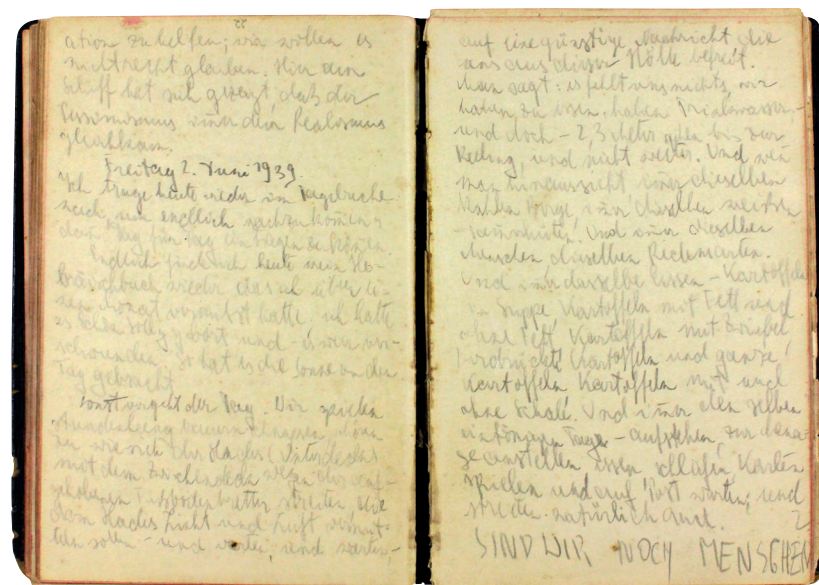 ation zu helfen; wir wollen es
nicht recht glauben. Hier am
Schiff hat sich gezeigt, daß der
Pessimismus immer dem Realismus
gleichkam.
Freitag 2. Juni 1939.
Ich trage heute wieder im Tagebuche
nach, um endlich nachzukommen u
dann Tag für Tag eintragen zu können.
Endlich fand ich heute mein He-
bräischbuch wieder das ich über ei-
nen Monat vermisst hatte. ich hatte
es schon und - es war ver-
schwunden. So hat es die Sonne an den
Tag gebracht.
Sonst vergeht der Tag. Wir spielen
stundenlang
zu wie sich die Hades (Unterdeck)
mit dem Zwischendeck wegen der auf-
gehobenen Fussbodenbretter streiten, die
dem Hades Licht und Luft vermit-
teln sollen - und warten, und warten -
auf eine günstige Nachricht die
uns aus dieser Hölle befreit.
Man sagt: es fehlt uns nichts, wir
haben zu essen, haben Trinkwasser -
und doch - 2, 3 Meter gehen bis zur
Reeling, und nicht weiter. Und wenn
man hinaussieht immer dieselben
kahlen Berge, immer dieselben weissen
. Und immer dieselben
Menschen dieselben Redensarten.
Und immer dasselbe Essen - Kartoffeln
in Suppe Kartoffeln mit Fett und
ohne Fett Kartoffeln mit Zwiebel
zerdrückte Kartoffeln und ganze!
Kartoffeln Kartoffeln mit und
ohne Schale! Und immer den selben
eintönigen Tag - aufstehen, zur
anstellen, essen schlafen Karten
spielen und auf Post warten; und
streiten natürlich auch.
SIND WIR NOCH MENSCHEN ?